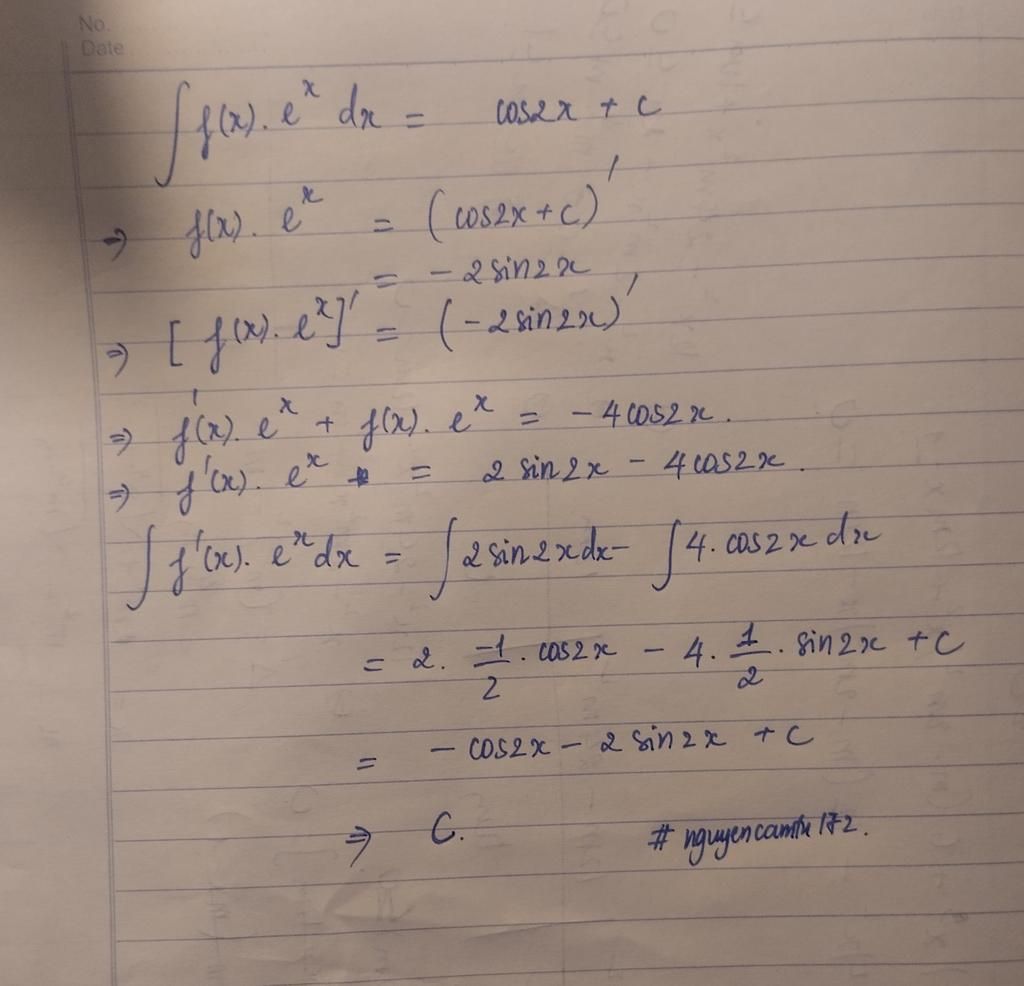 No.
Date
∫ f(x). e^x dx = cos2x + c
⇒ f(x). e^x = (cos2x+c)'
= -2sin2x
⇒ [f(x). e^x]' = (-2sin2x)'
⇒ f'(x). e^x + f(x). e^x = -4cos2x.
⇒ f'(x). e^x = 2 sin2x - 4cos2x.
∫ f'(x). e^x dx = ∫ 2sin2xdx - ∫ 4. cos2x dx
= 2. -1/2 . cos2x - 4. 1/2 . sin2x + C
= -cos2x - 2 sin2x + C
⇒ C. # nguyencamtu172.